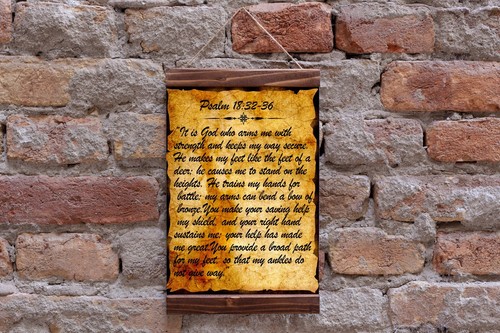 Psalm 18:32-36
"It is God who arms me with
strength and keeps my way secure.
He makes my feet like the feet of a
deer; he causes me to stand on the
heights. He trains my hands for
battle; my arms can bend a bow of
bronze.You make your saving help
my shield, and your right hand
sustains me; your help has made
me great.You provide a broad path
for my feet, so that my ankles do
not give way.